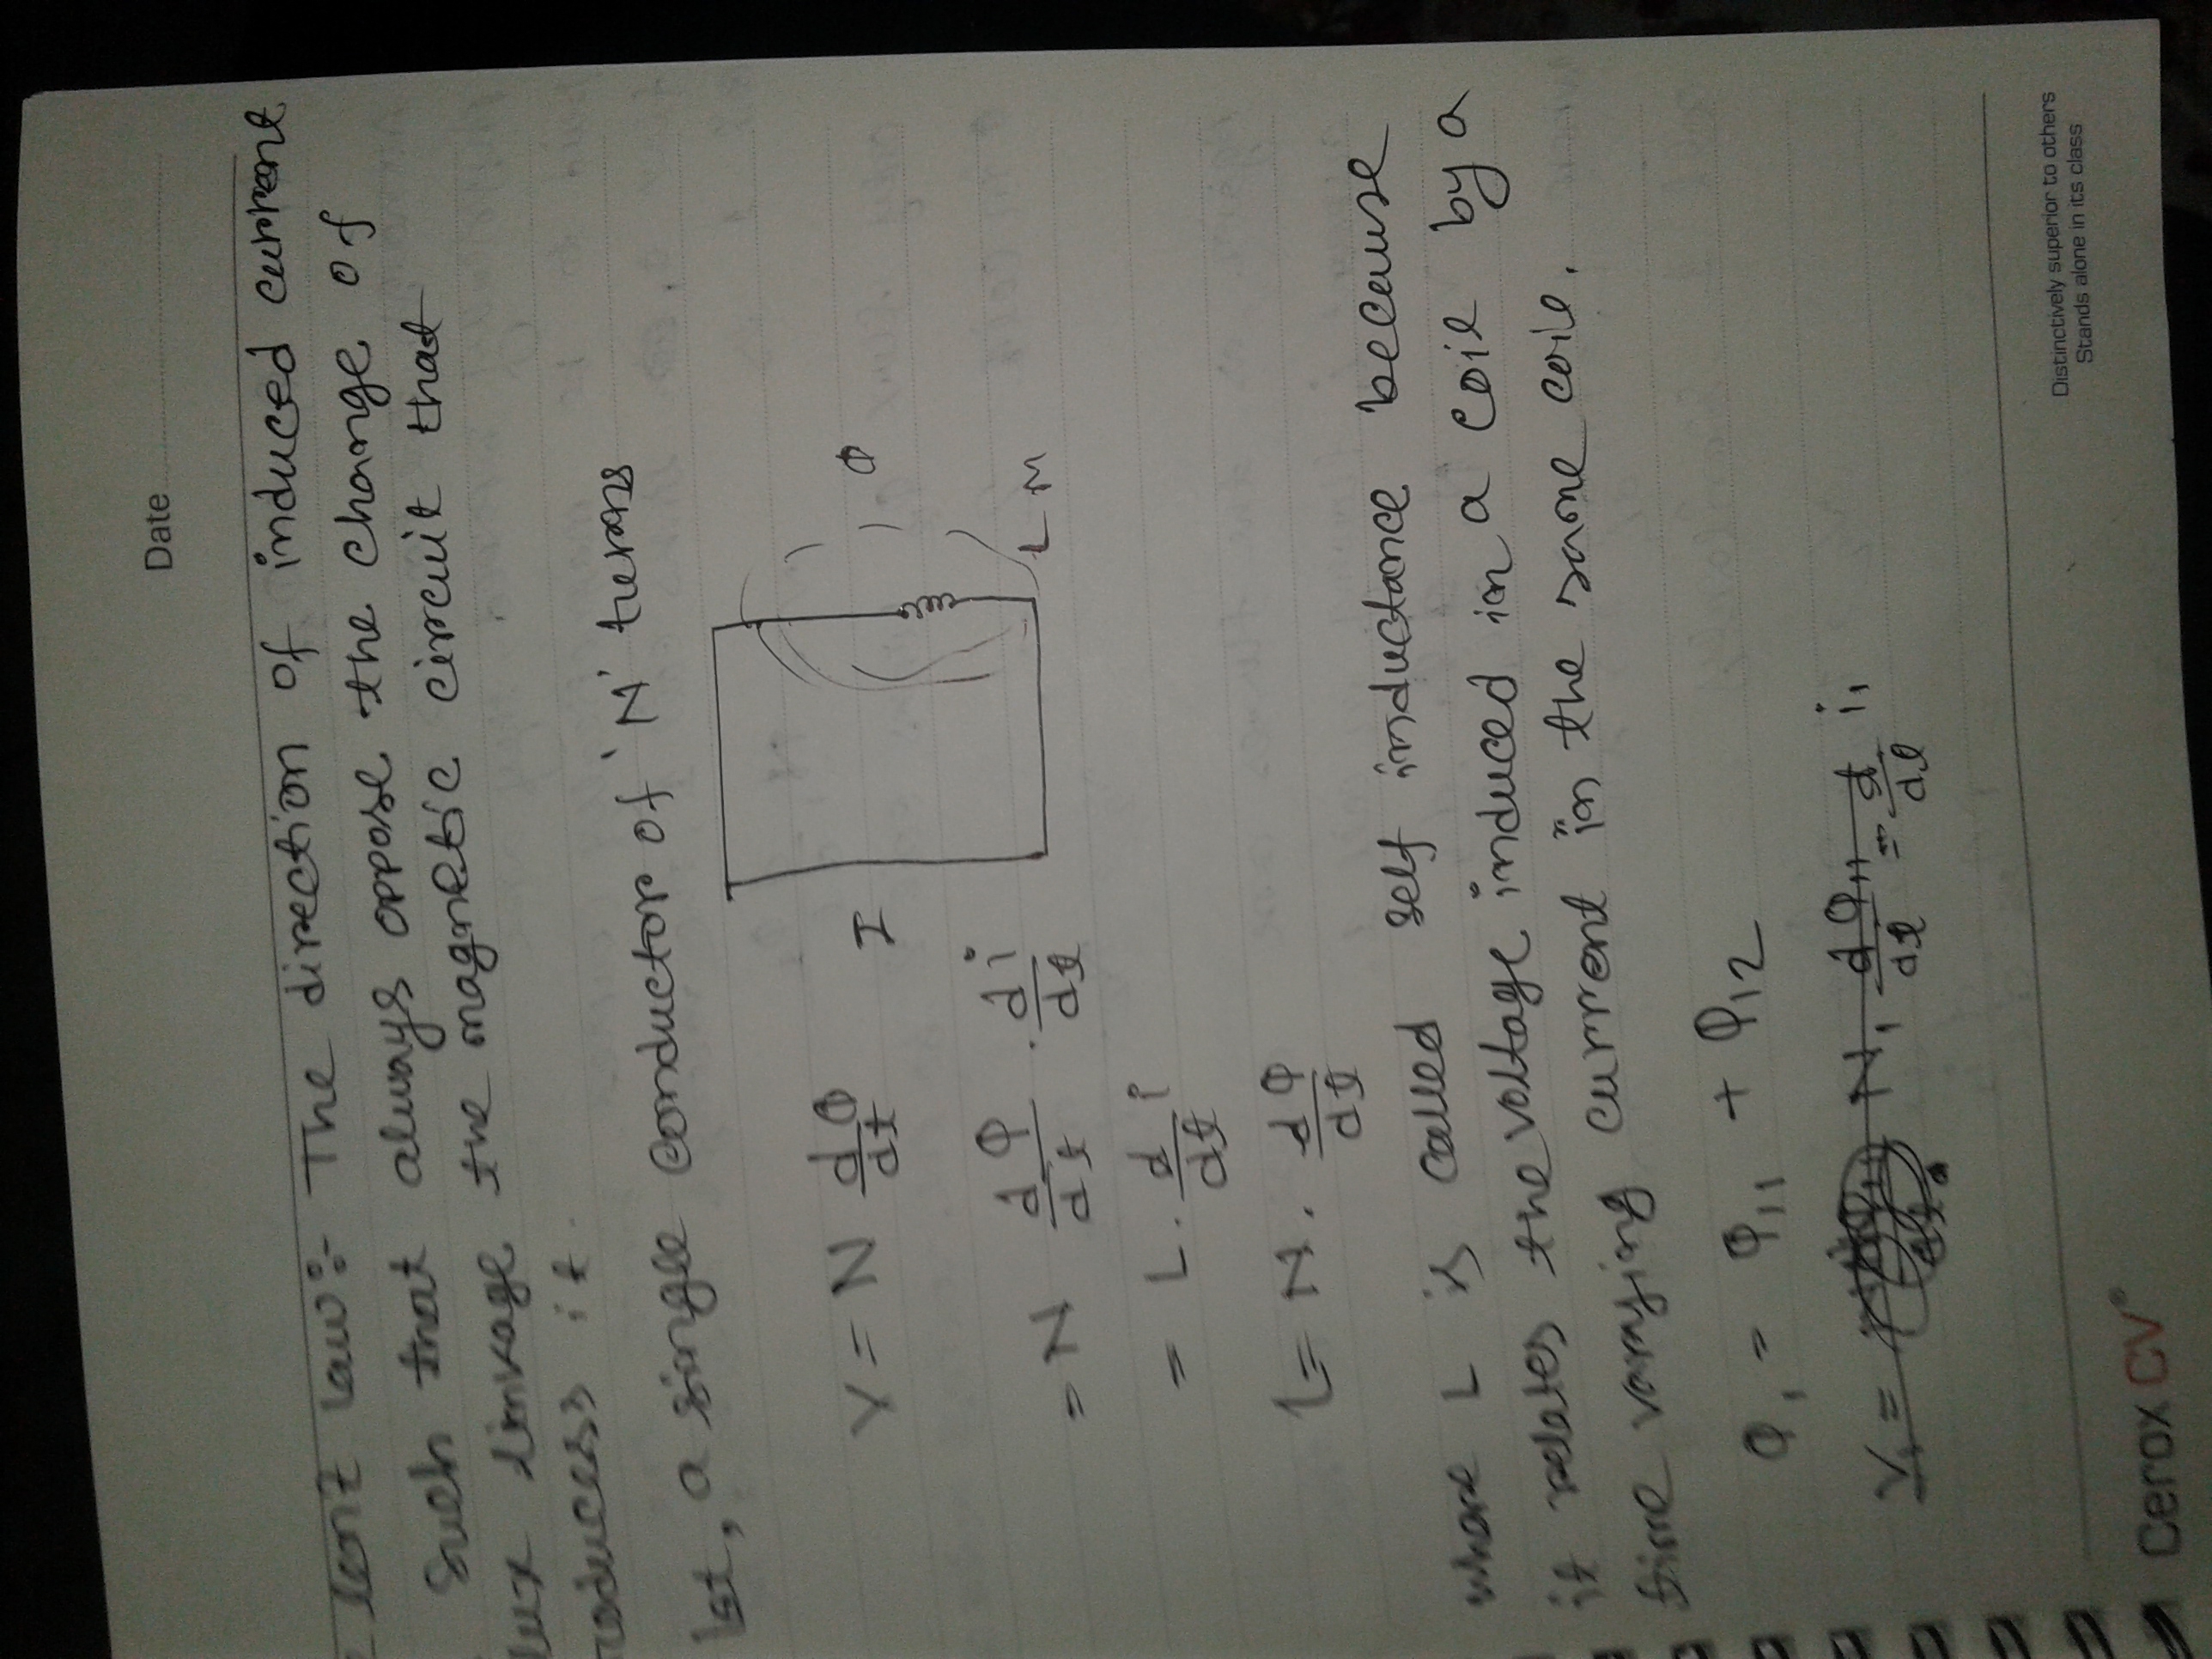 Date
lenz law:- The direction of induced current
such that always oppose the change of
lux linkage the magnetic circuit that
roducess it.
1st, a single conductor of 'N' turns
V = N dΦ/dt
I
Φ
= N dΦ/dt . di/dt
L M
= L . d/dt i
L = N . dΦ/dt
where L is called self inductance because
it relates the voltage induced in a coil by a
time varying current in the same coil.
Φ₁ = Φ₁₁ + Φ₁₂
V₁ = N₁ dΦ₁₁/dt = d/dt i₁
Distinctively superior to others
Stands alone in its class
Cerox CV®